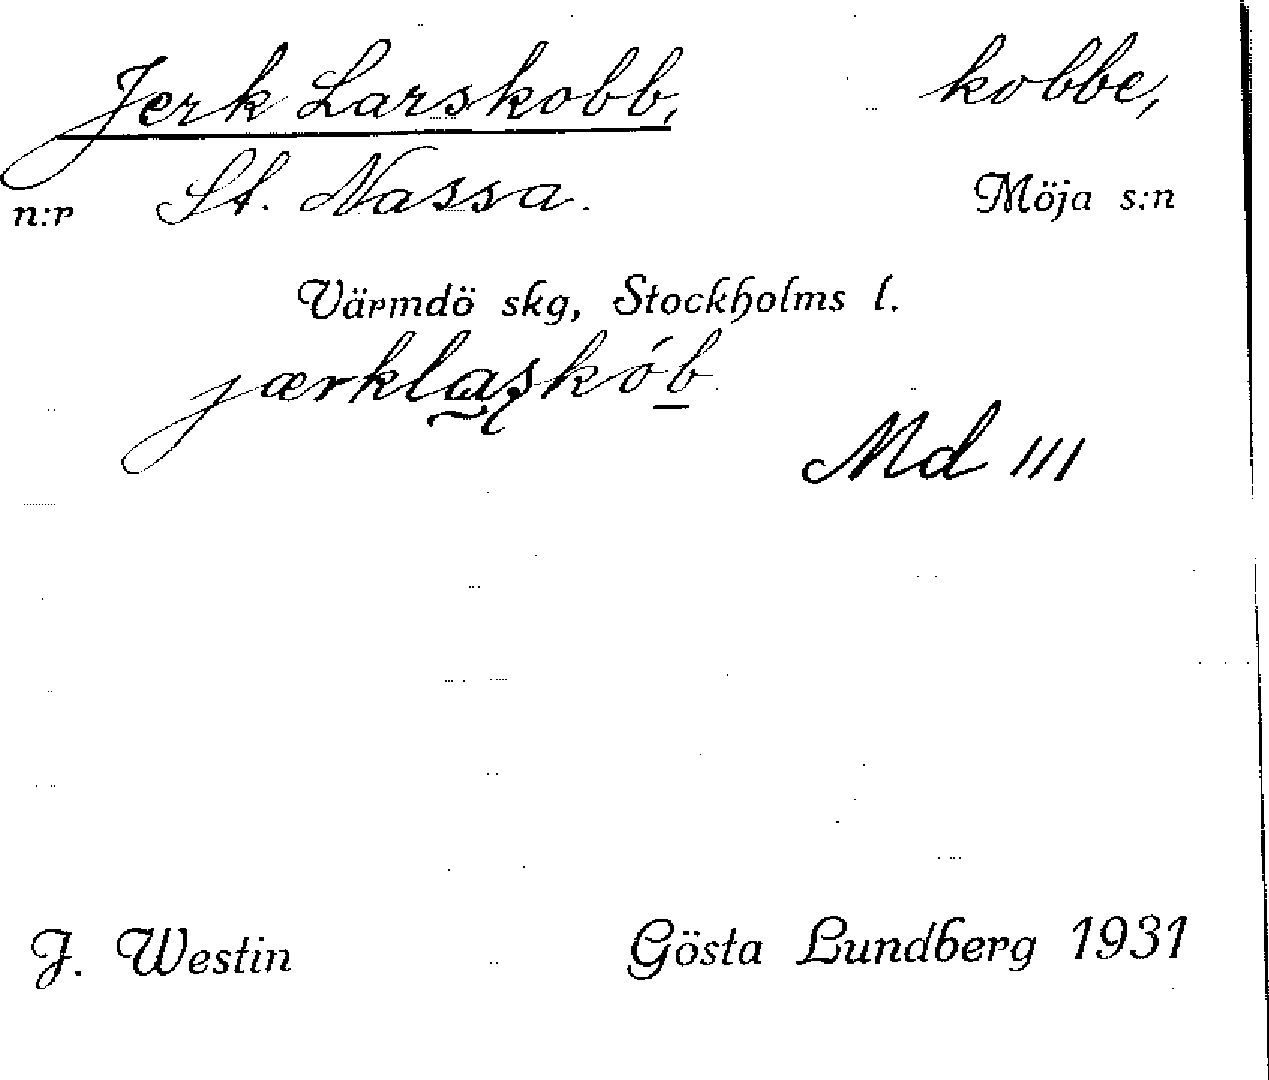 Jerk Larskobb, kobbe,
n:r St. Nassa. Möja s:n
Värmdö skg, Stockholms l.
jærklaskób
Md III
J. Westin Gösta Lundberg 1931